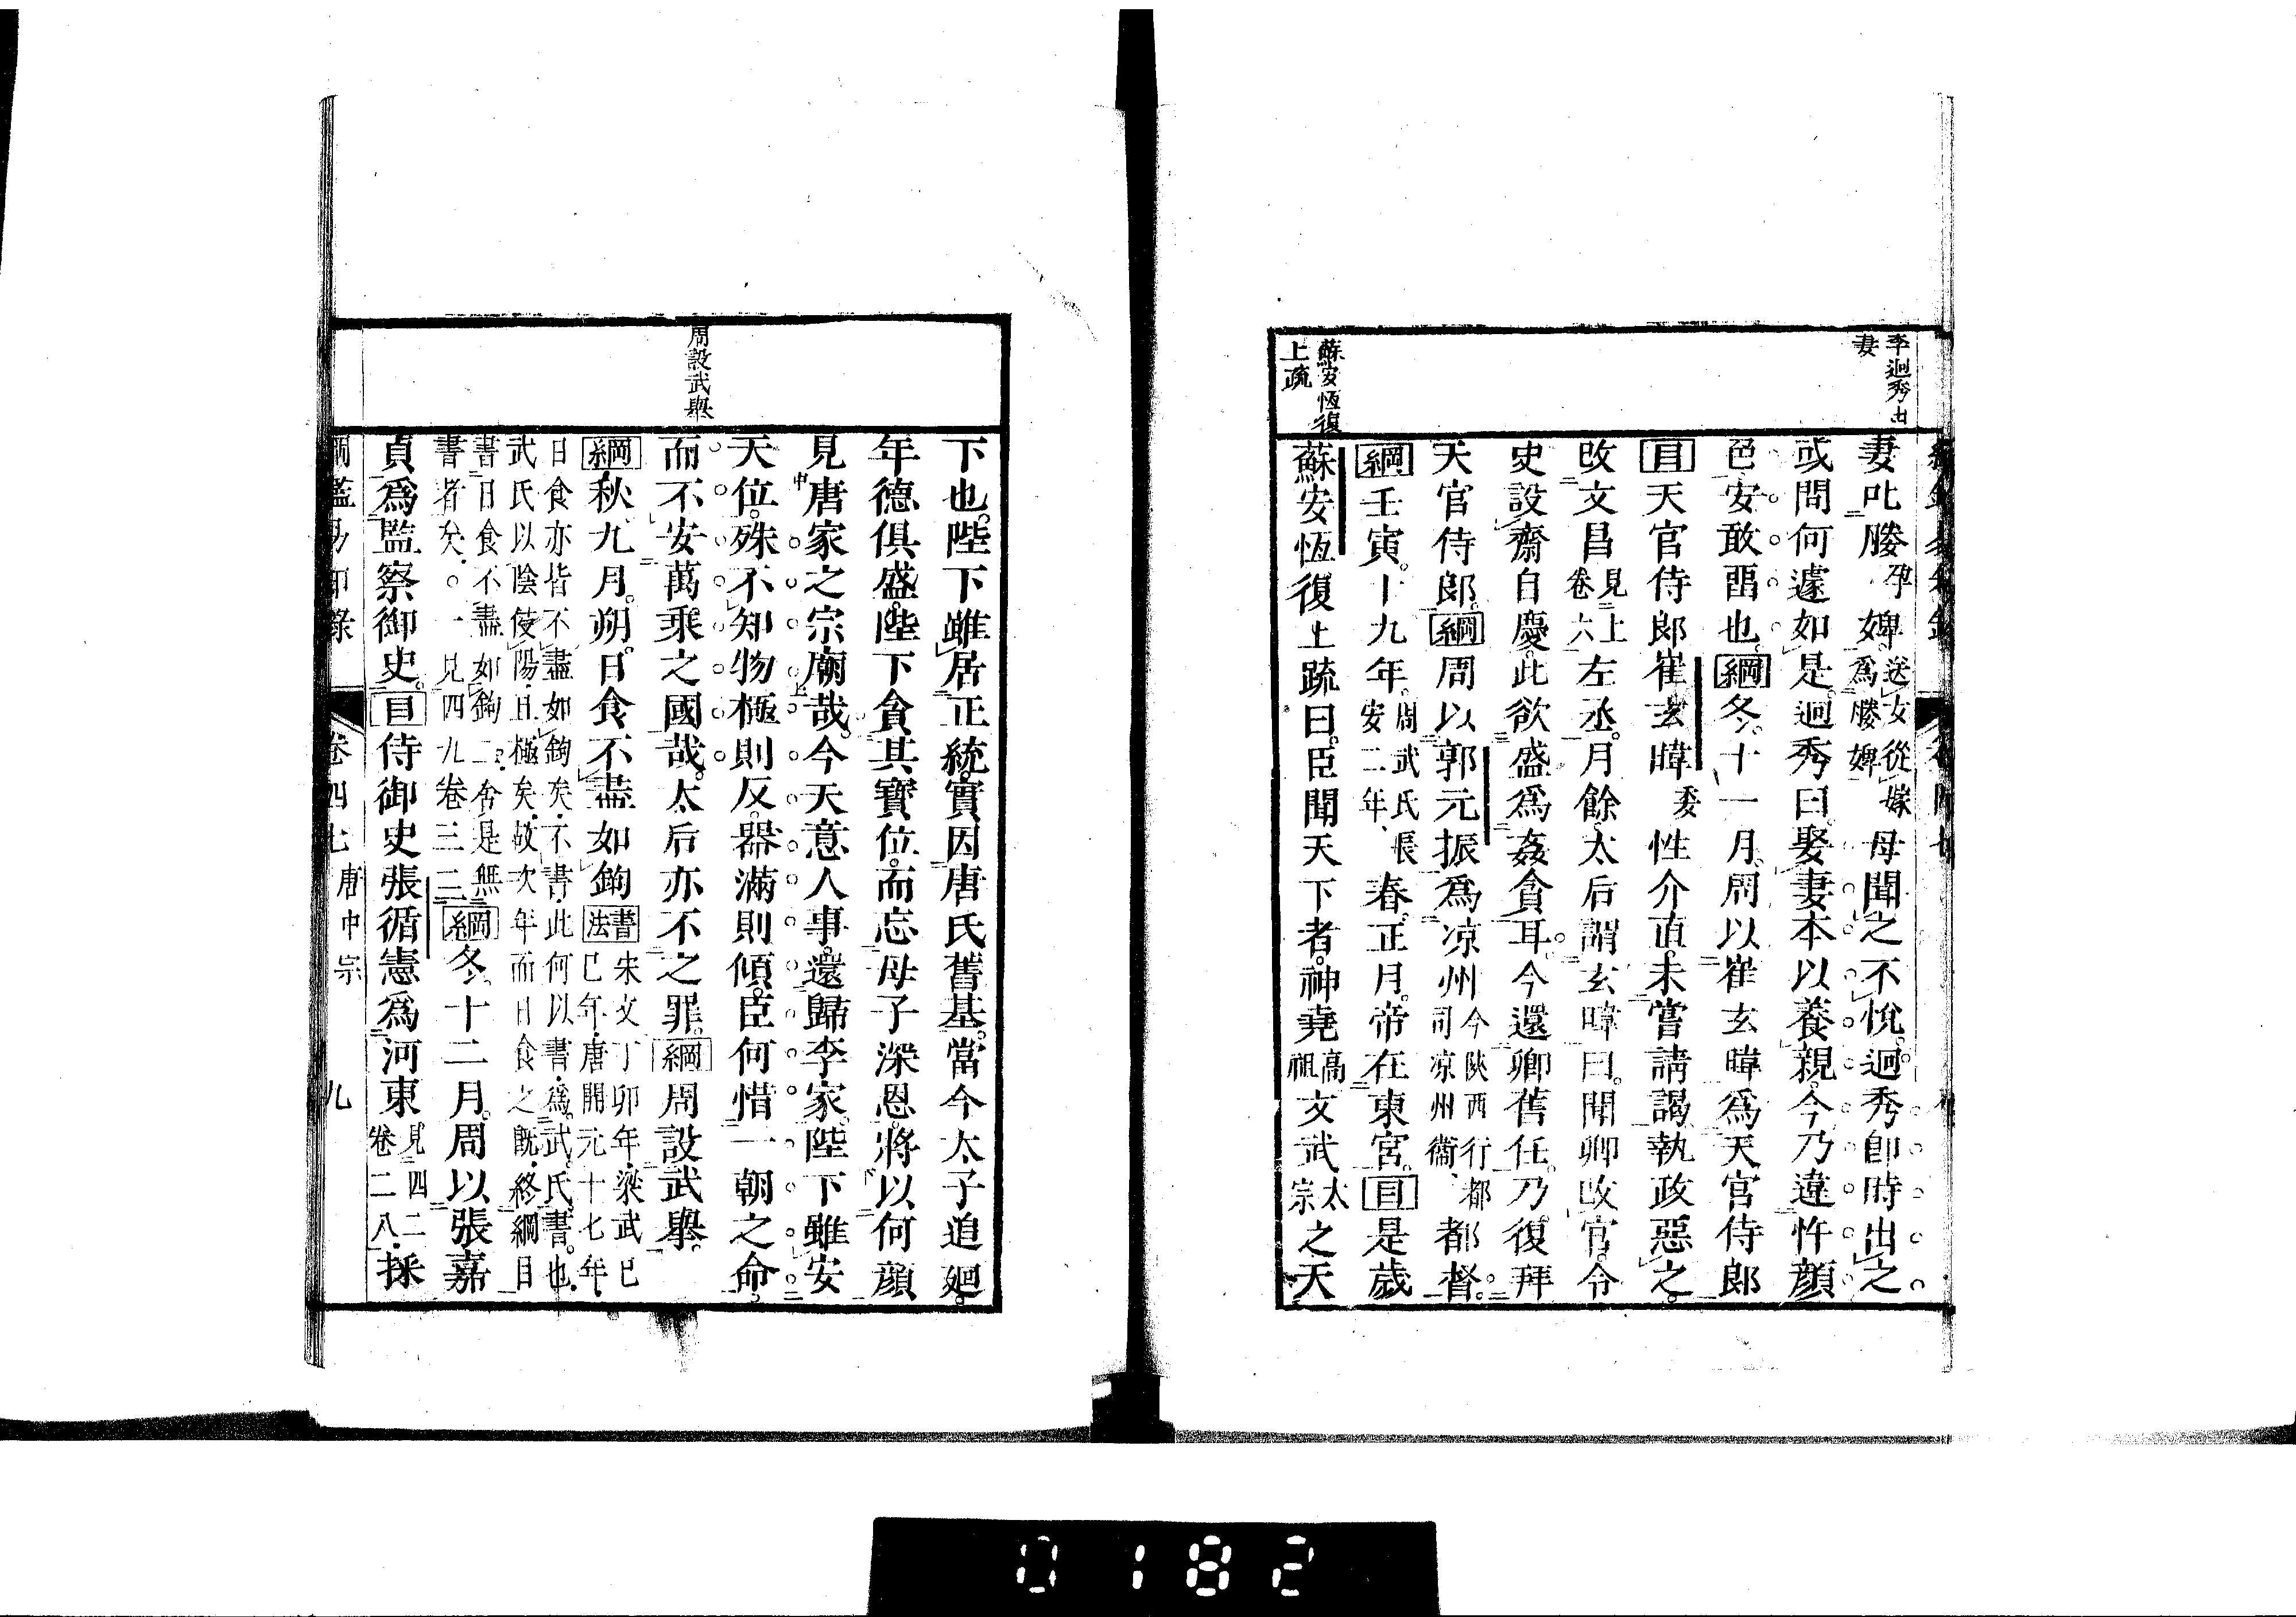 李迥秀出
妻
妻叱媵孕婢送女從嫁爲媵婢母聞之不悅迥秀卽時出之
或問何遽如是迥秀曰娶妻本以養親今乃違忤顏
色安敢畱也綱冬十一月周以崔玄暐爲天官侍郎
目天官侍郎崔玄暐委性介直未嘗請謁執政惡之
改文昌見上卷六左丞月餘太后謂玄暐曰聞卿改官令
史設齋自慶此欲盛爲姦貪耳今還卿舊任乃復拜
天官侍郎綱周以郭元振爲凉州今陝西行都司凉州衞都督
綱壬寅十九年周武氏長安二年春正月帝在東宮目是歲
蘇安恆復
上疏
蘇安恆復上疏曰臣聞天下者神堯高祖文武太宗之天
下也陛下雖居正統實因唐氏舊基當今太子追廻
年德俱盛陛下貪其寶位而忘母子深恩將以何顏
見唐家之宗廟哉今天意人事還歸李家陛下雖安
天位殊不知物極則反器滿則傾臣何惜一朝之命
而不安萬乘之國哉太后亦不之罪綱周設武舉
周設武舉
綱秋九月朔日食不盡如鉤書法朱文丁卯年梁武巳巳年唐開元十七年
日食亦皆不盡如鉤矣不書此何以書爲武氏書也
武氏以陰侵陽且極矣故次年而日食之旣終綱目
書日食不盡如鉤二舍是無
書者矣○一見四九卷三二綱冬十二月周以張嘉
貞爲監察御史目侍御史張循憲爲河東見四二卷二八採
綱鑑易知錄 卷四七 唐中宗 九
0182